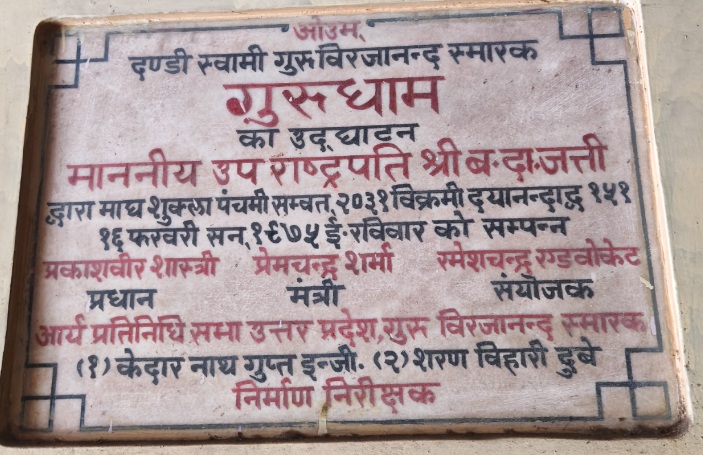 ओउम्
दण्डी स्वामी गुरु विरजानन्द स्मारक
गुरु धाम
का उद्घाटन
माननीय उप राष्ट्रपति श्री ब.दा.जत्ती
द्वारा माघ शुक्ला पंचमी सम्वत् २०३१ विक्रमी दयानन्दाद्ध १५१
१६ फरवरी सन् १९७५ ई. रविवार को सम्पन्न
प्रकाशवीर शास्त्री प्रेमचन्द्र शर्मा रमेशचन्द्र एडवोकेट
प्रधान मंत्री संयोजक
आर्य प्रतिनिधि सभा उत्तर प्रदेश, गुरु विरजानन्द स्मारक
(१) केदार नाथ गुप्त इन्जी. (२) शरण विहारी दुबे
निर्माण निरीक्षक